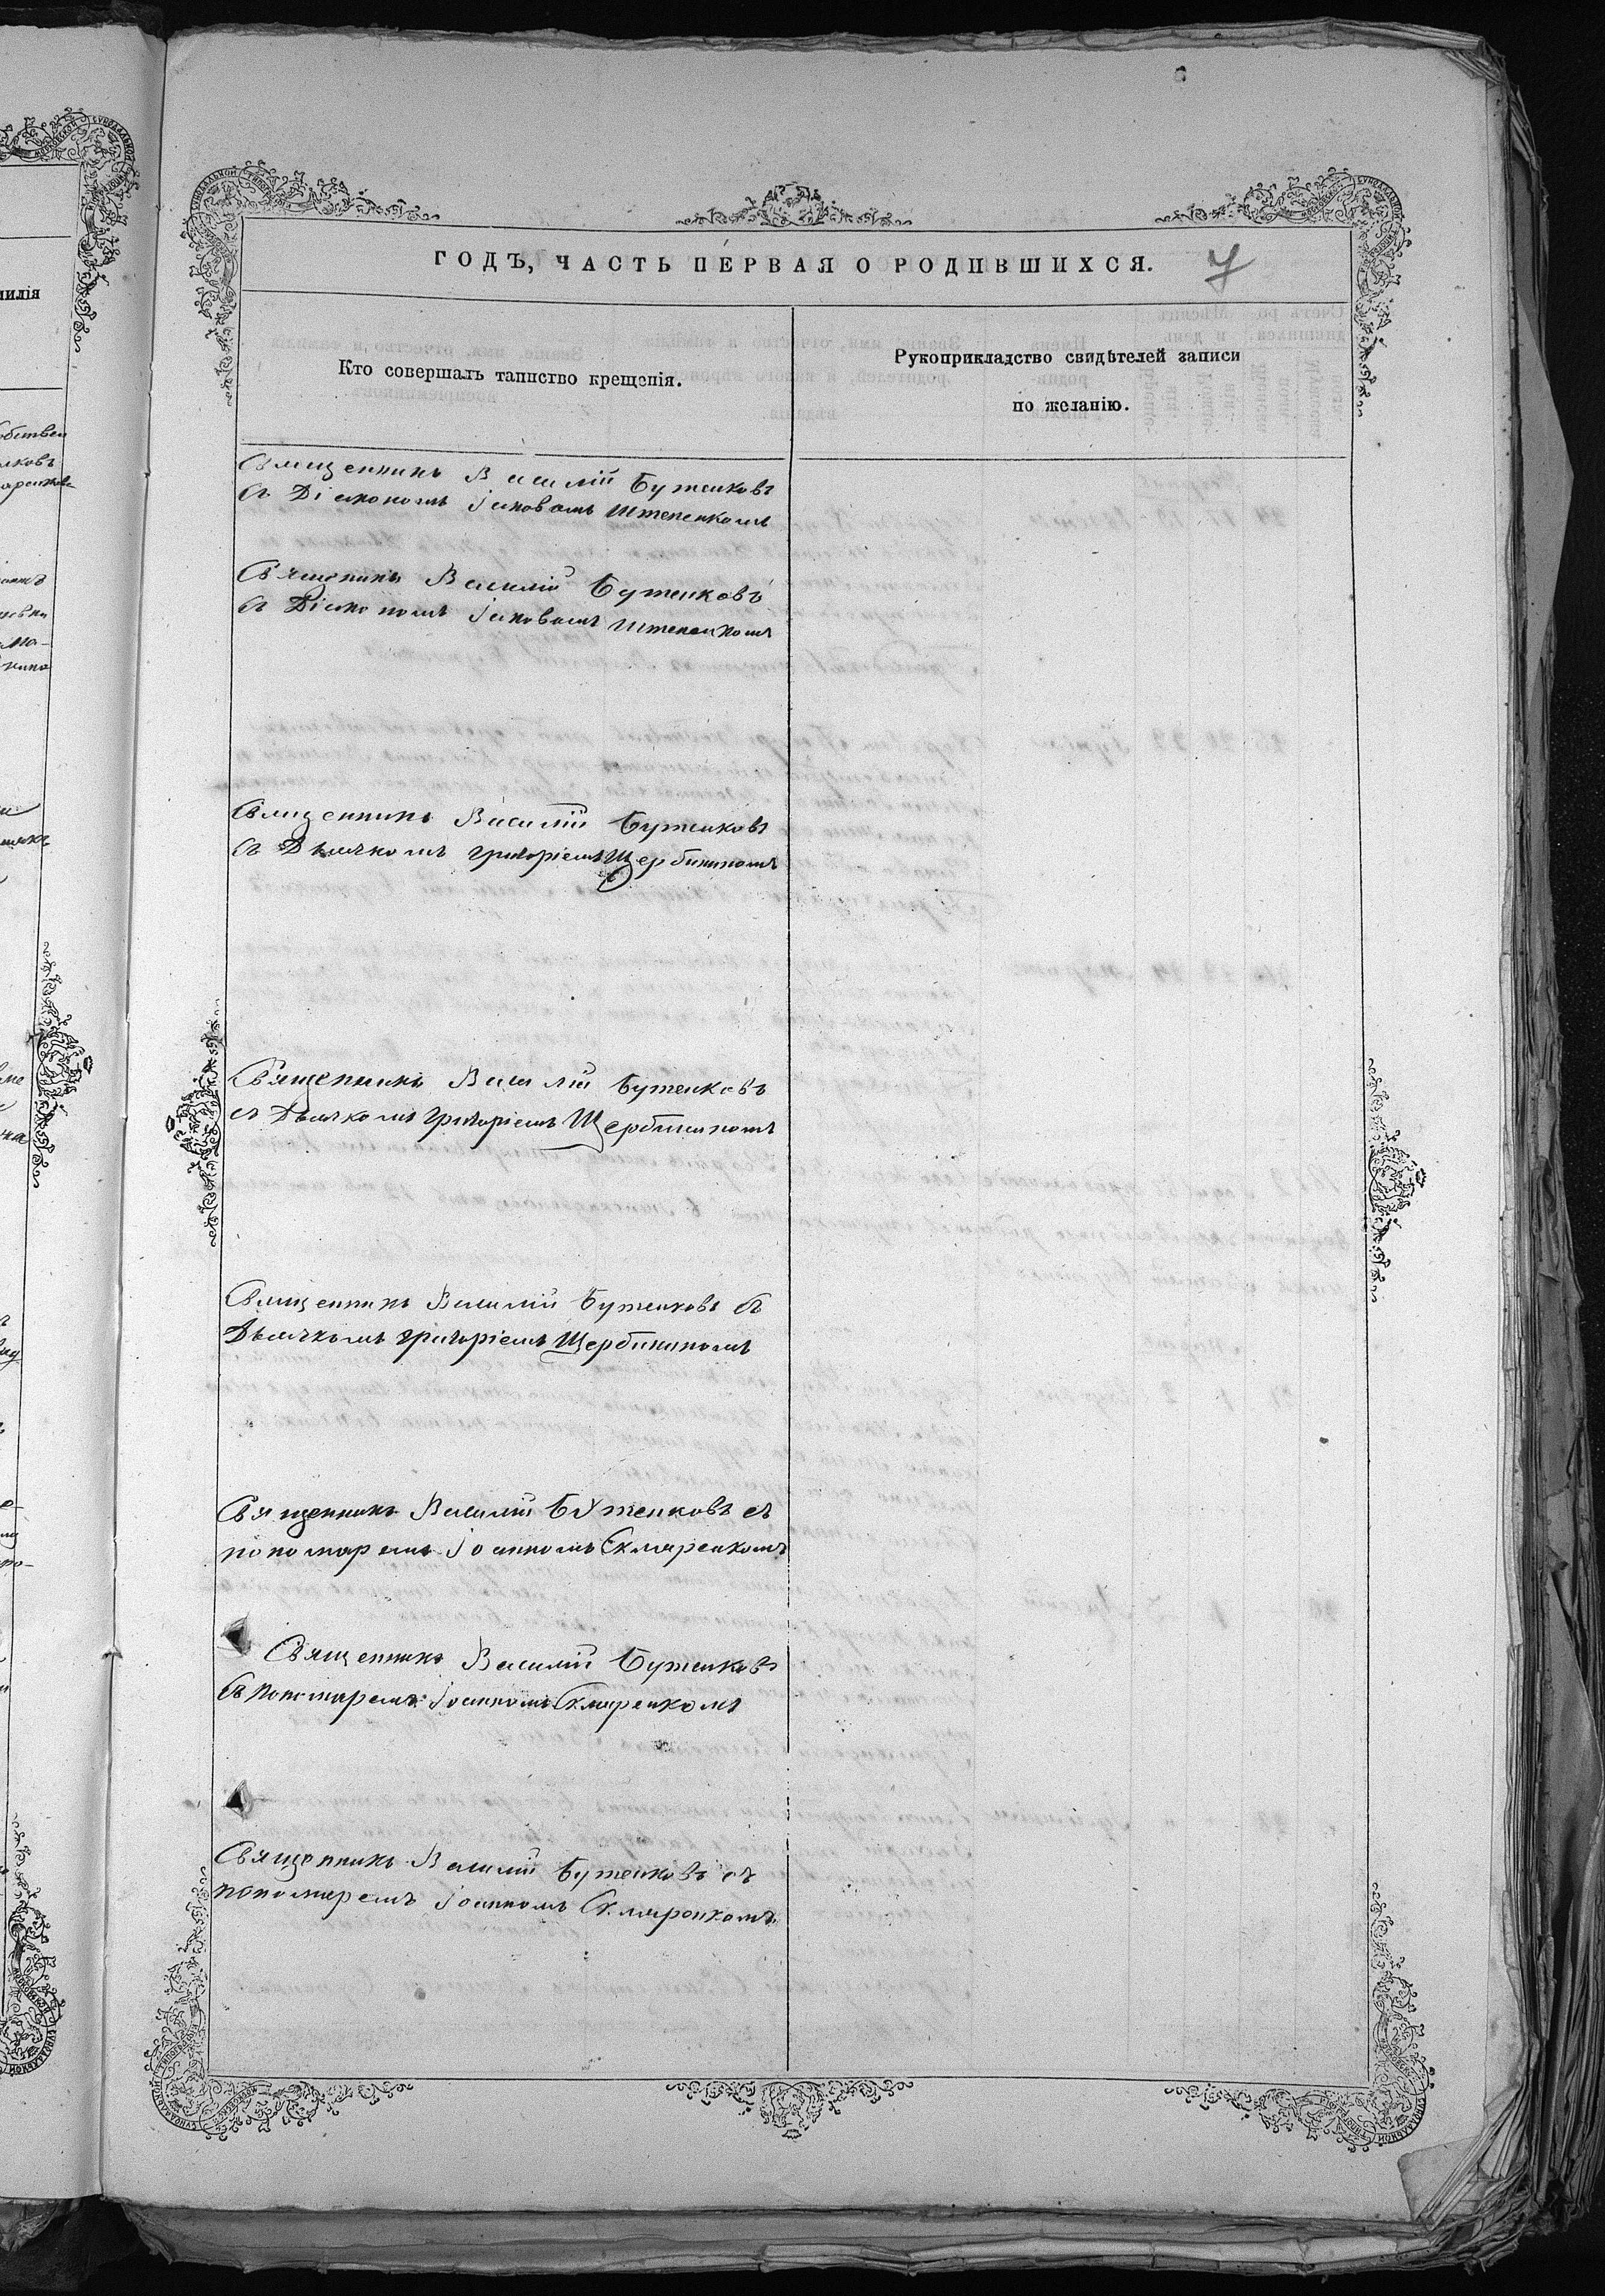 ГОДЪ, ЧАСТЬ ПЕРВАЯ О РОДИВШИХСЯ. 7
Кто совершалъ таинство крещенія.
Рукоприкладство свидѣтелей записи
по желанію.
Священникъ Василій Бутенковъ
съ Діакономъ Іаковомъ Штепенкомъ
Священникъ Василій Бутенковъ
съ Діакономъ Іаковомъ Штепенкомъ
Священникъ Василій Бутенковъ
съ Дьячкомъ Григоріемъ Щербининомъ
Священникъ Василій Бутенковъ
съ Дьячкомъ Григоріемъ Щербининомъ
Священникъ Василій Бутенковъ съ
Дьячкомъ Григоріемъ Щербининомъ
Священникъ Василій Бутенковъ съ
пономаремъ Іоанномъ Скляренкомъ
Священникъ Василій Бутенковъ
съ Пономаремъ Іоанномъ Скляренкомъ
Священникъ Василій Бутенковъ съ
пономаремъ Іоанномъ Скляренкомъ